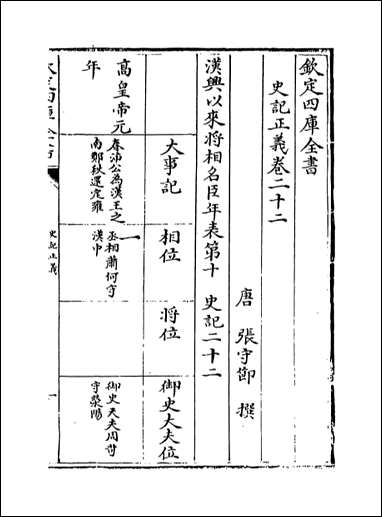 欽定四庫全書
史記正義卷二十二
唐 張守節 撰
漢興以來將相名臣年表第十 史記二十二
大事記
相位
將位
御史大夫位
高皇帝元
年
春沛公為漢王之
南鄭秋還定雍
一
丞相蕭何守
漢中
御史大夫周苛
守滎陽
史記正義
一